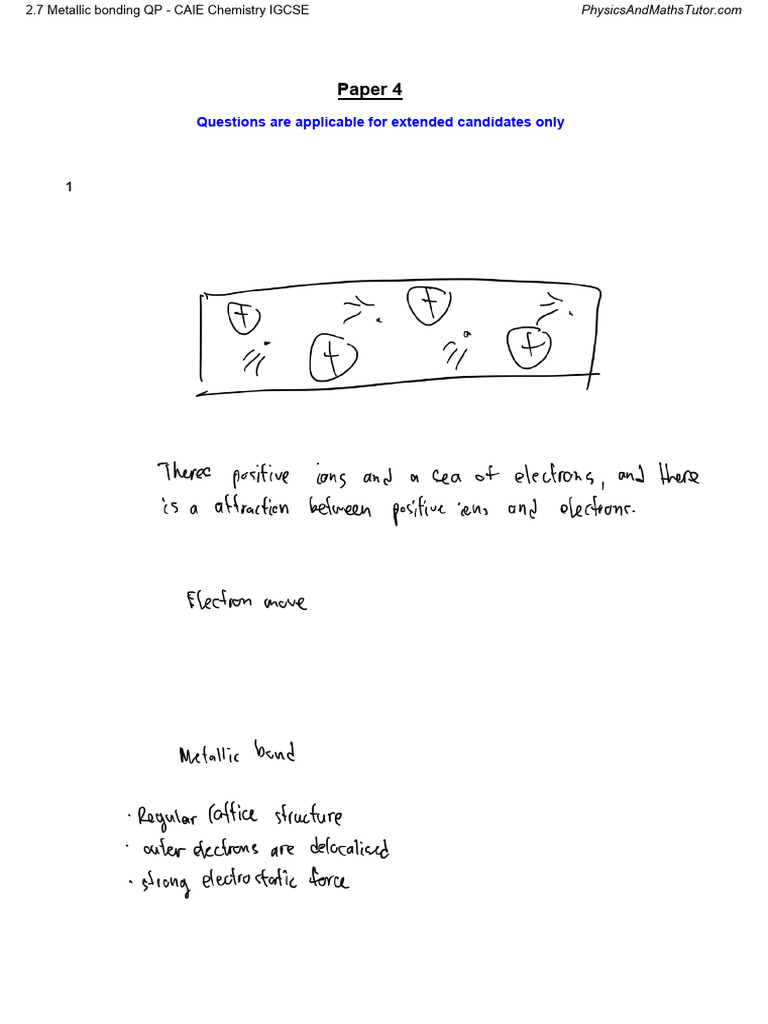 2.7 Metallic bonding QP - CAIE Chemistry IGCSE PhysicsAndMathsTutor.com
Paper 4
Questions are applicable for extended candidates only
1
+ + 
+ +
positive ions and a sea of electrons, and there
is a attraction between positive ions and electrons.
Electron move
Metallic bond
· Regular lattice structure
· outer electrons are delocalised
· strong electrostatic force